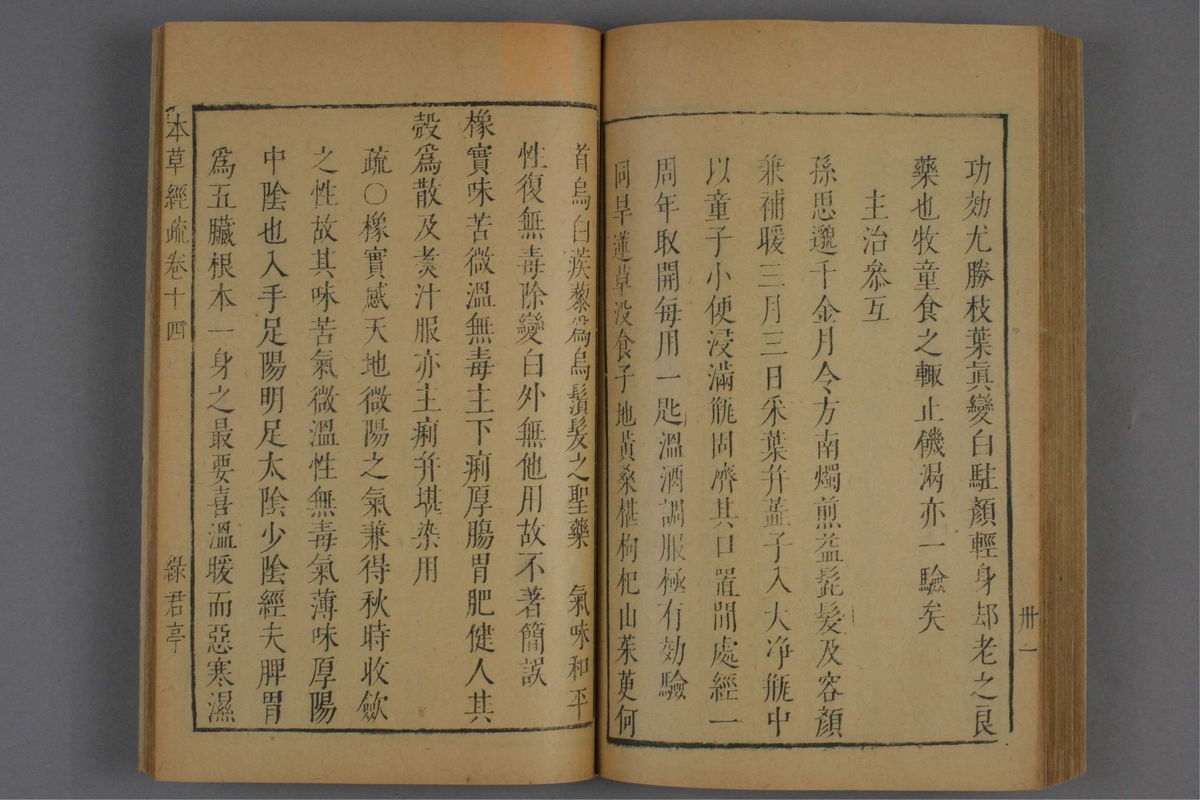 功効尤勝枝葉眞變白駐顏輕身却老之良
藥也牧童食之輒止饑渴亦一驗矣
主治叅互
孫思邈千金月令方南燭煎益髭髮及容顏
兼補暖三月三日采葉幷蘂子入大凈甁中
以童子小便浸滿甁固濟其口置閒處經一
周年取開每用一匙溫酒調服極有効驗
同旱蓮草没食子地黃桑椹枸杞山茱萸何
卅一
首烏白蒺藜為烏鬚髮之聖藥　氣味和平
性復無毒除變白外無他用故不著簡誤
橡實味苦微溫無毒主下痢厚腸胃肥健人其
殼爲散及煑汁服亦主痢幷堪染用
疏○橡實感天地微陽之氣兼得秋時收歛
之性故其味苦氣微溫性無毒氣薄味厚陽
中陰也入手足陽明足太陰少陰經夫脾胃
爲五臟根本一身之最要喜溫暖而惡寒濕
本草經疏卷十四
綠君亭